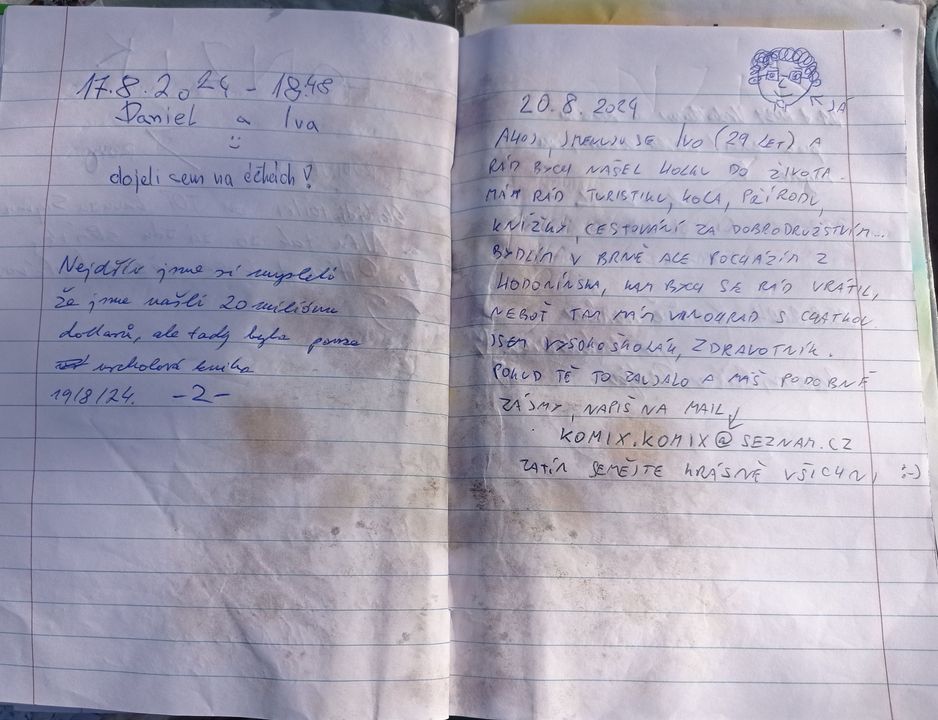 17.8.2024 - 18:48
Daniel a Iva
:)
dojeli sem na éčkách!
Nejdřív jsme si mysleli
že jsme našli 20 miliónu
dollarů, ale tady byla pouze
vrcholová kniha
19/8/24. -2-
JÁ
20.8.2024
AHOJ JMENUJU SE IVO (29 LET) A
RÁD BYCH NAŠEL HOLKU DO ŽIVOTA.
MÁM RÁD TURISTIKU, KOLA, PŘÍRODU,
KNÍŽKY, CESTOVÁNÍ ZA DOBRODRUŽSTVÍM...
BYDLÍM V BRNĚ ALE POCHÁZÍM Z
HODONÍNSKA, KAM BYCH SE RÁD VRÁTIL,
NEBOŤ TAM MÁM VINOHRAD S CHATKOU.
JSEM VYSOKOŠKOLÁK, ZDRAVOTNÍK.
POKUD TĚ TO ZAUJALO A MÁŠ PODOBNÉ
ZÁJMY, NAPIŠ NA MAIL
KOMIX.KOMIX@SEZNAM.CZ
ZATÍM SE MĚJTE KRÁSNĚ VŠICHNI :-)